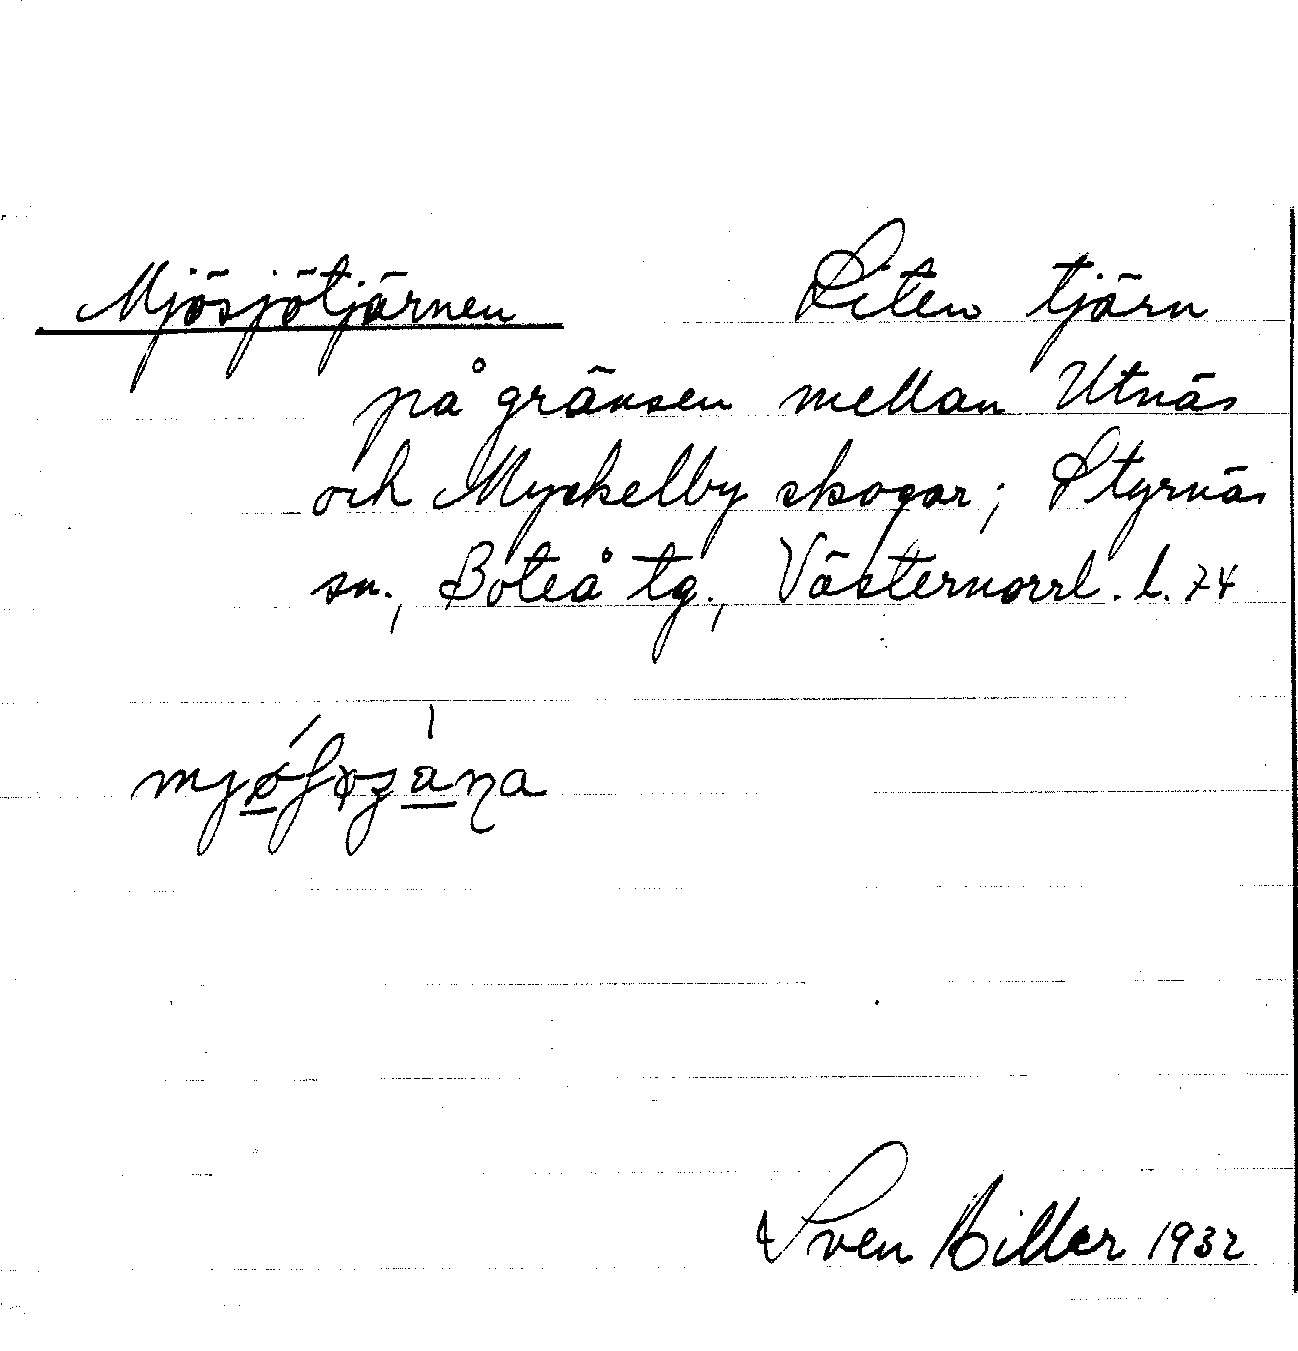 Mjösjötjärnen Liten tjärn
på gränsen mellan Utnäs
och Myckelby skogar; Styrnäs
sn., Boteå tg., Västernorrl. l. 74
Sven Hiller 1932